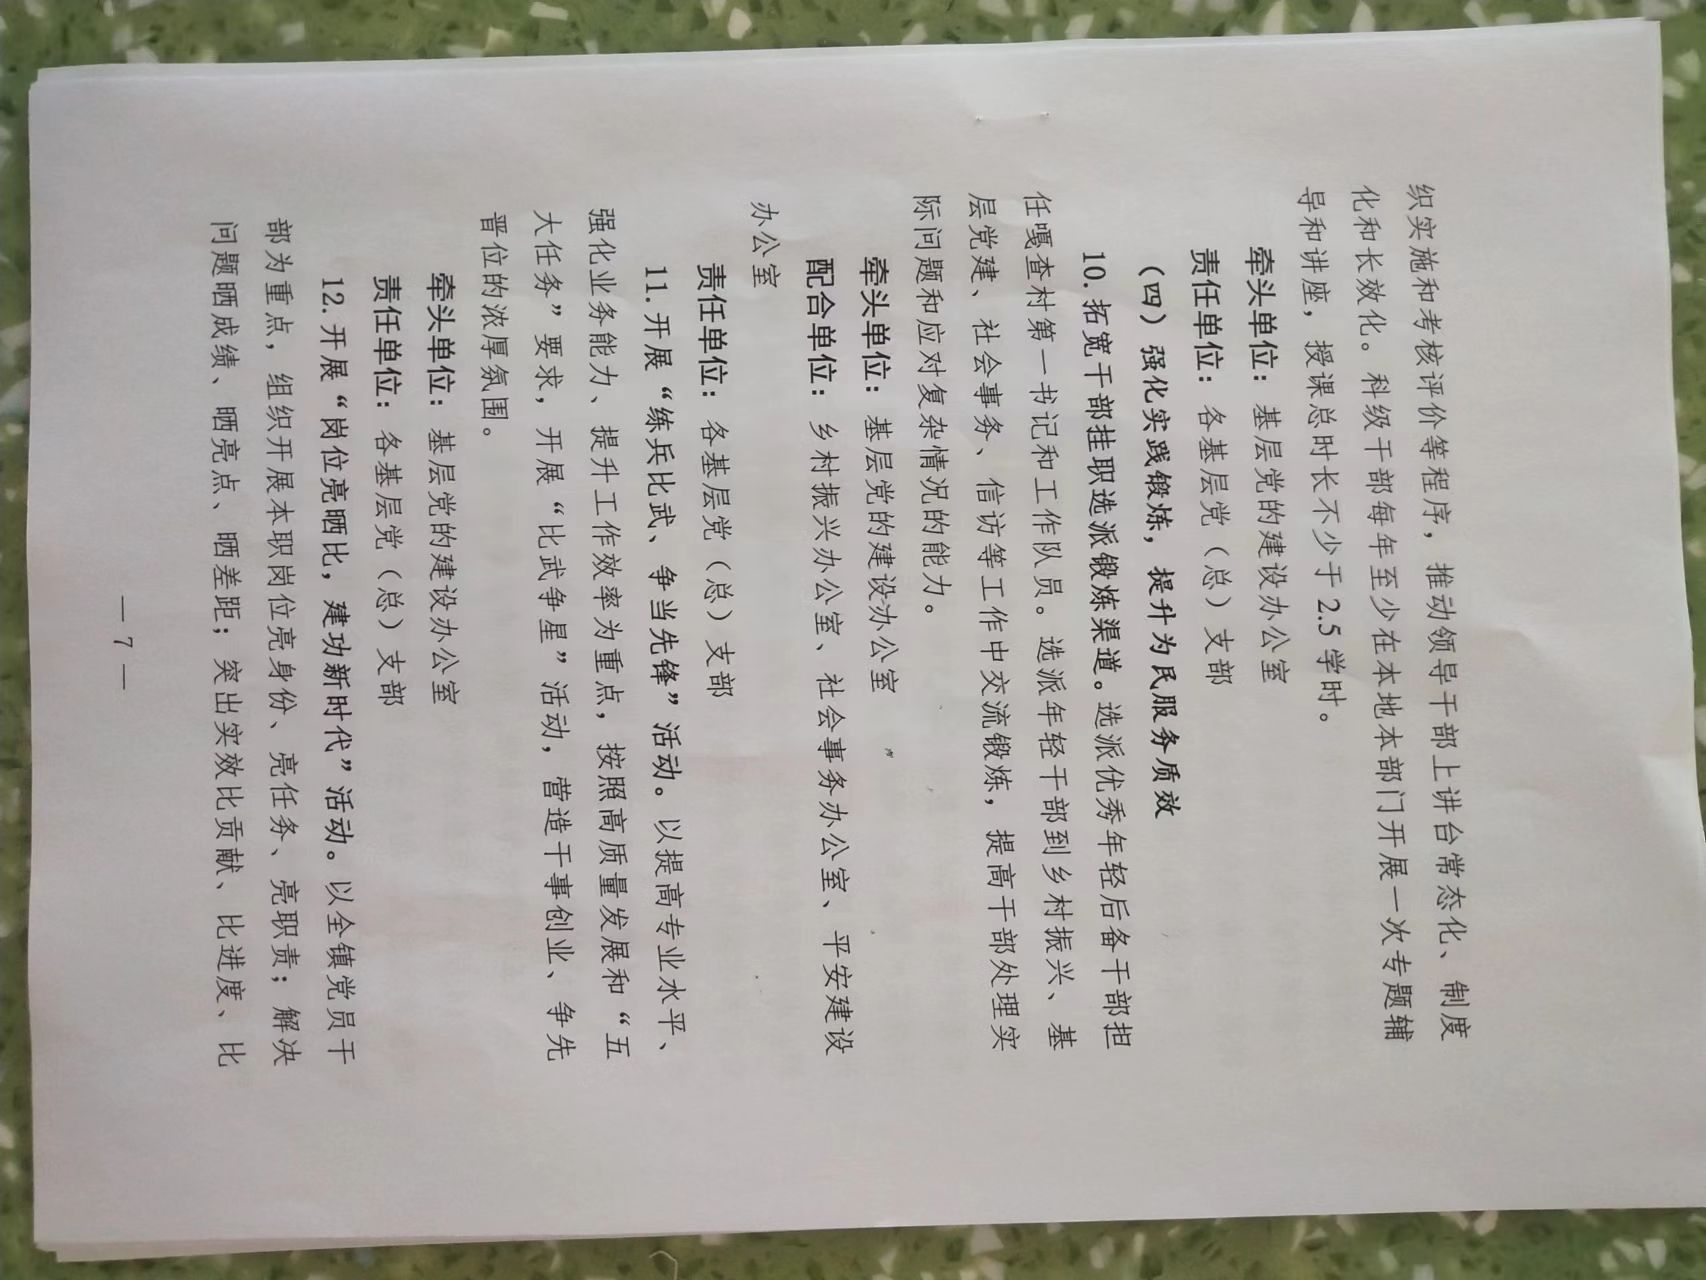 织实施和考核评价等程序，推动领导干部上讲台常态化、制度
化和长效化。科级干部每年至少在本地本部门开展一次专题辅
导和讲座，授课总时长不少于 2.5 学时。
牵头单位：基层党的建设办公室
责任单位：各基层党（总）支部
（四）强化实践锻炼，提升为民服务质效
10. 拓宽干部挂职选派锻炼渠道。选派优秀年轻后备干部担
任嘎查村第一书记和工作队员。选派年轻干部到乡村振兴、基
层党建、社会事务、信访等工作中交流锻炼，提高干部处理实
际问题和应对复杂情况的能力。
牵头单位：基层党的建设办公室
配合单位：乡村振兴办公室、社会事务办公室、平安建设
办公室
责任单位：各基层党（总）支部
11. 开展“练兵比武、争当先锋”活动。以提高专业水平、
强化业务能力、提升工作效率为重点，按照高质量发展和“五
大任务”要求，开展“比武争星”活动，营造干事创业、争先
晋位的浓厚氛围。
牵头单位：基层党的建设办公室
责任单位：各基层党（总）支部
12. 开展“岗位亮晒比，建功新时代”活动。以全镇党员干
部为重点，组织开展本职岗位亮身份、亮任务、亮职责；解决
问题晒成绩、晒亮点、晒差距；突出实效比贡献、比进度、比
— 7 —